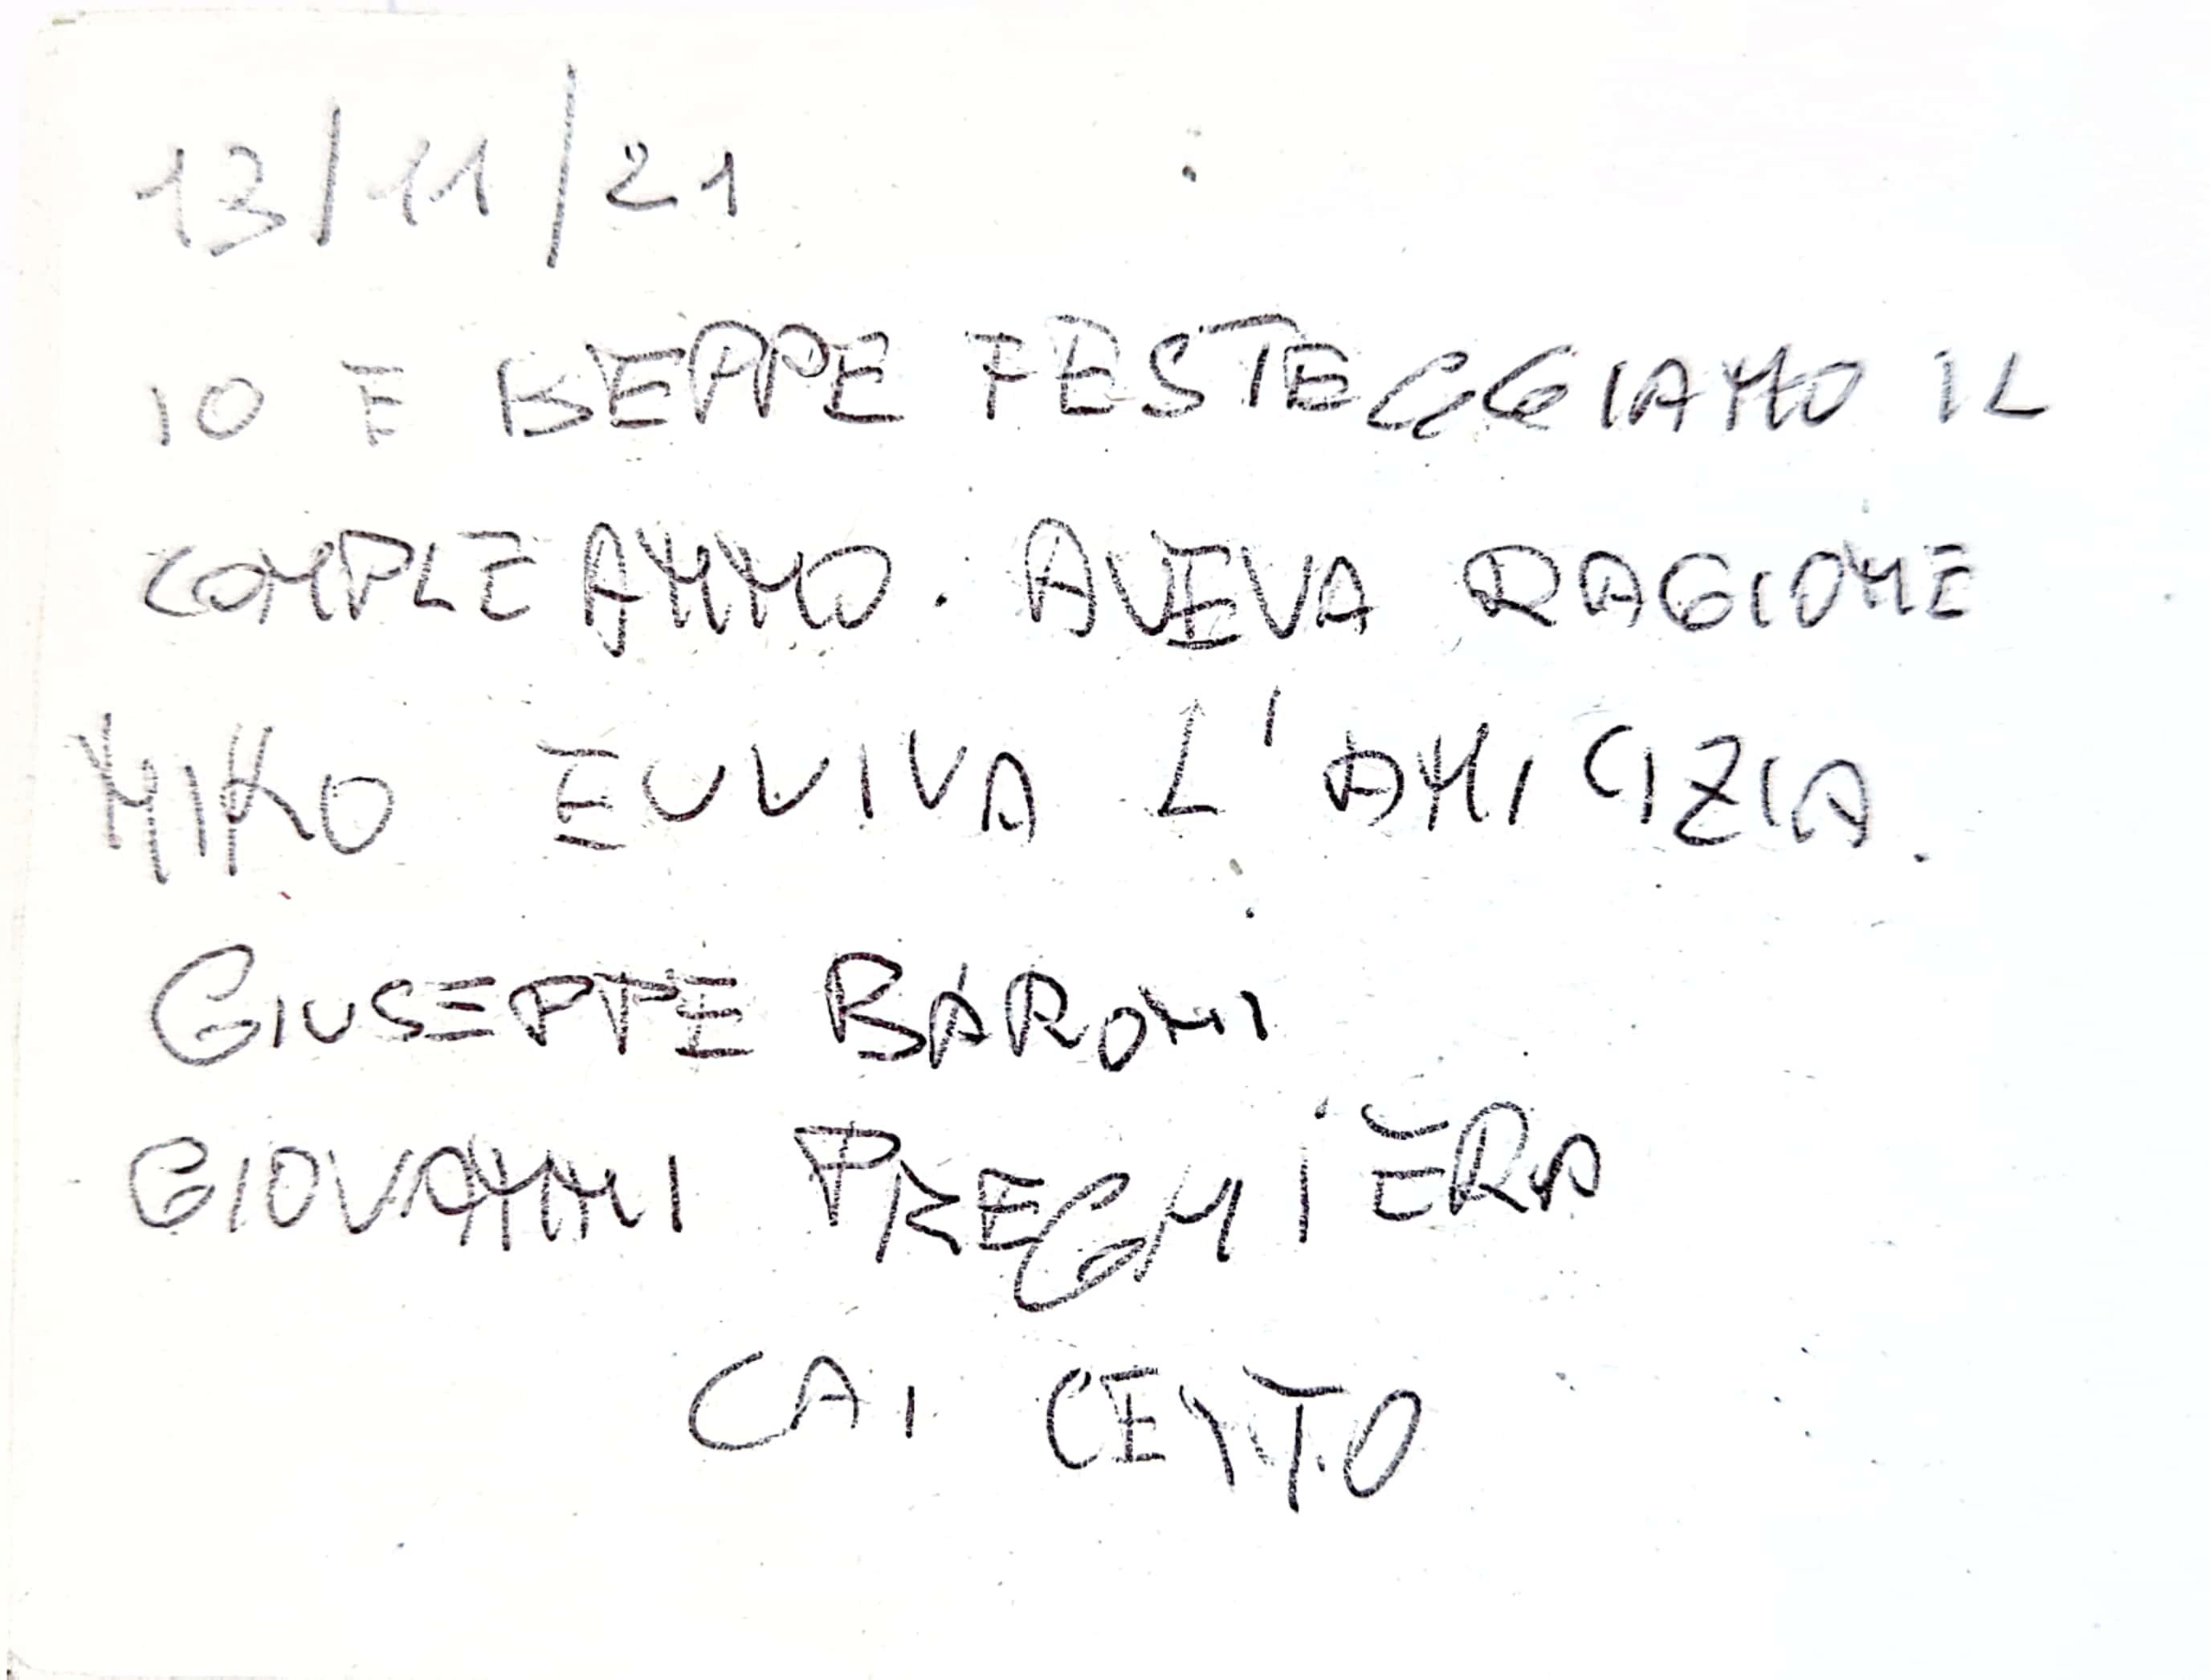 13/11/21
IO E BEPPE FESTEGGIAMO IL
COMPLEANNO. AVEVA RAGIONE
MIKO EVVIVA L'AMICIZIA.
GIUSEPPE BARONI
GIOVANNI PREGHIERA
CAI CENTO